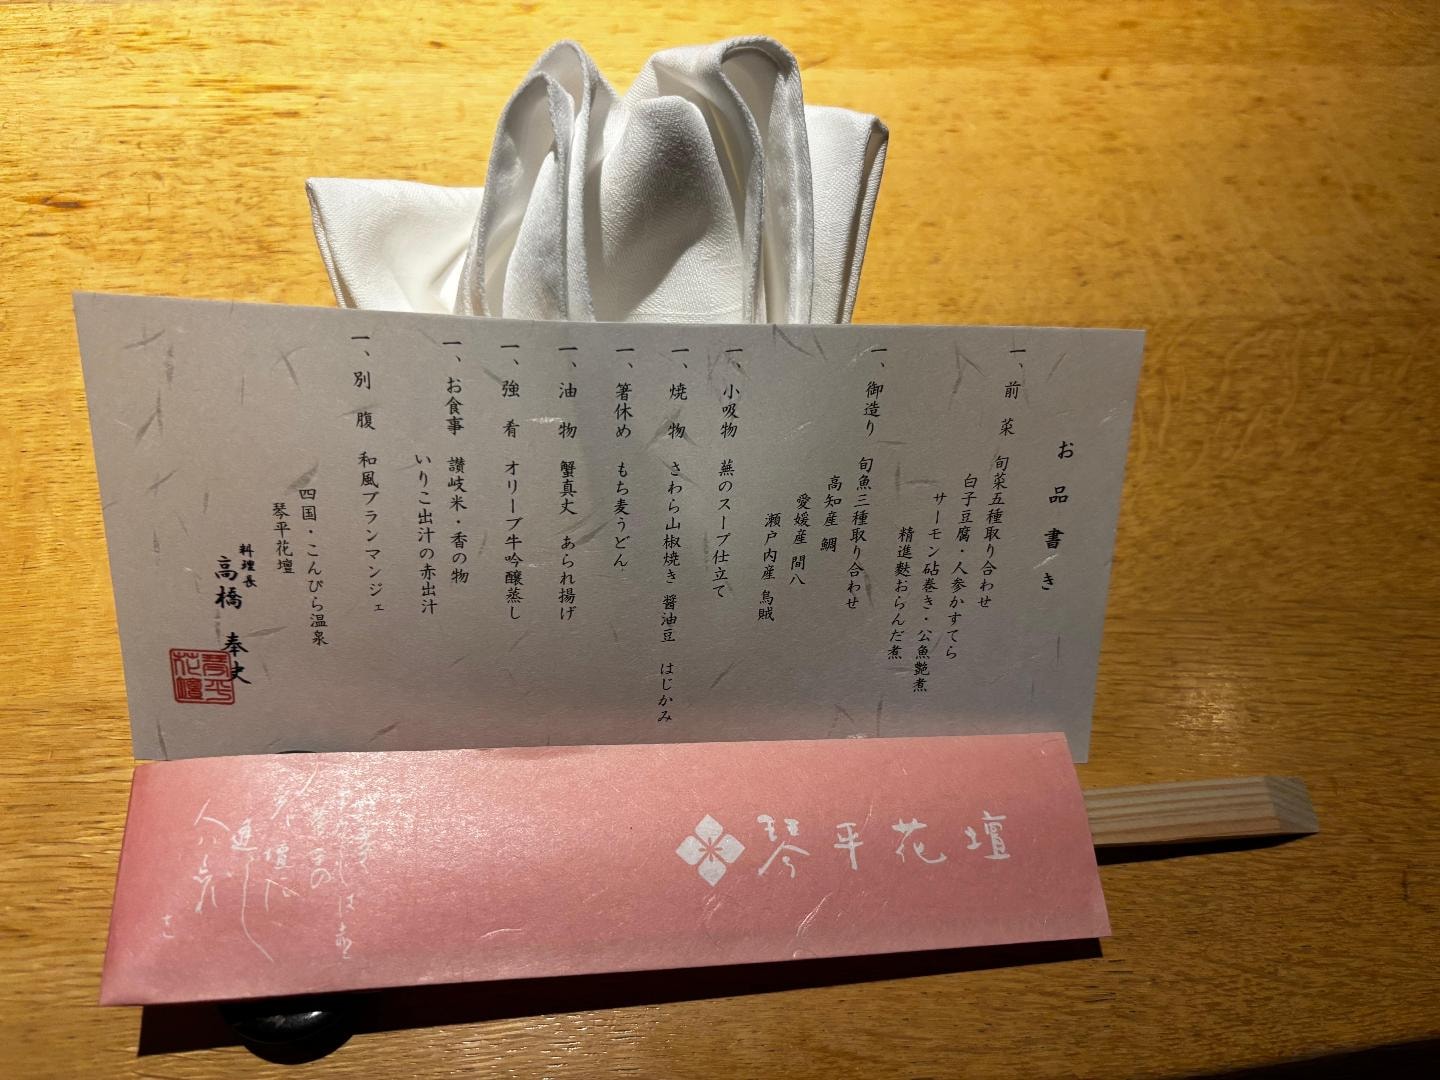 お品書き
一、前菜　旬菜五種取り合わせ
白子豆腐・人参かすてら
サーモン砧巻き・公魚艶煮
精進麩おらんだ煮
一、御造り　旬魚三種取り合わせ
高知産　鯛
愛媛産　間八
瀬戸内産　烏賊
一、小吸物　蕪のスープ仕立て
一、焼物　さわら山椒焼き　醤油豆　はじかみ
一、箸休め　もち麦うどん
一、油物　蟹真丈　あられ揚げ
一、強肴　オリーブ牛吟醸蒸し
一、お食事　讃岐米・香の物
いりこ出汁の赤出汁
一、別腹　和風ブランマンジェ
四国・こんぴら温泉
琴平花壇
料理長
高橋　奉史
琴平花壇
琴平花壇